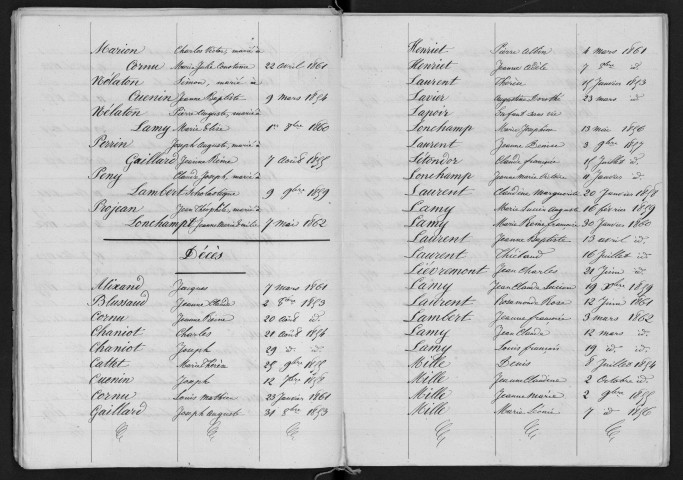 Marion Charles Victor, marié à
Cornu Marie Julie Constance 22 avril 1861
Nélaton Simon, marié à
Cuenin Jeanne Baptiste 9 mars 1854
Nélaton Pierre Auguste, marié à
Lamy Marie Elise 1er 8bre 1860
Perrin Joseph Auguste, marié à
Gaillard Jeanne Reine 7 août 1855
Pony Claude Joseph, marié à
Lambert Scholastique 9 9bre 1859
Projean Jean Théophile, marié à
Lonchampt Jeanne Marie Emilie 7 mai 1862
Décès
Alixand Jacques 7 mars 1861
Blussaud Jeanne Claude 2 8bre 1853
Cornu Jeanne Reine 20 août id.
Chaniot Charles 21 août 1854
Chaniot Joseph 29 id. id.
Cattet Marie Thérèse 25 9bre 1855
Cuenin Joseph 12 7bre 1858
Cornu Louis Mathieu 23 janvier 1861
Gaillard Joseph Auguste 31 8bre 1853
Henriet Pierre Albin 4 mars 1861
Henriet Jeanne Adèle 7 8bre id.
Laurent Thérèse 15 janvier 1853
Lavier Augustine 23 mars id.
Lapoir Enfant sans vie
Lonchamp Marie Joséphine 13 mai 1856
Laurent Jeanne Denise 3 9bre 1857
Létondor Claude François 15 Juillet id.
Lonchamp Jeanne Marie Victoire 11 janvier id.
Laurent Claudine Marguerite 20 janvier 1858
Lamy Marie Lucien Auguste 16 février 1859
Lamy Marie Reine Françoise 30 janvier 1860
Laurent Jeanne Baptiste 13 avril id.
Laurent Thiébaud 16 juillet id.
Lièvremont Jean Charles 21 juin id.
Lamy Jean Claude Lucien 19 Xbre 1859
Laurent Rosamonde Rose 12 juin 1861
Lambert Jeanne Françoise 3 mars 1862
Lamy Jean Claude 12 mars id.
Lamy Louis François 19 id. id.
Mille Denis 8 Juillet 1854
Mille Jeanne Claudine 2 Octobre id.
Mille Jeanne Marie 2 9bre 1855
Mille Marie 7 id 1856